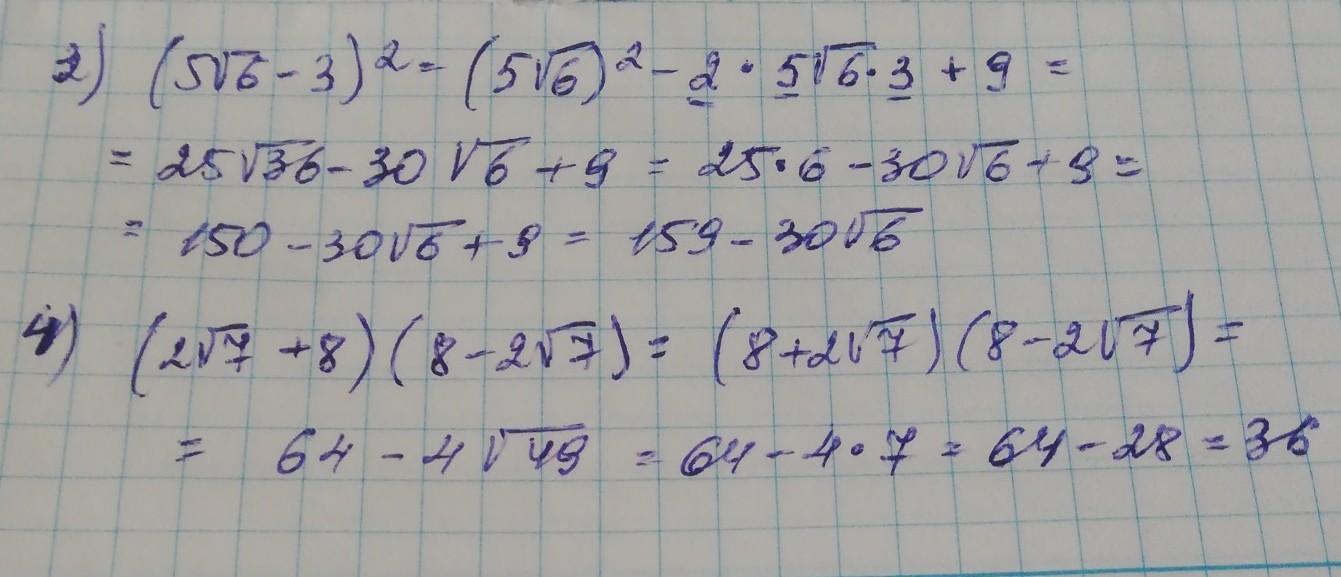 2) (5√6 - 3)² = (5√6)² - 2 · 5√6 · 3 + 9 =
= 25√36 - 30√6 + 9 = 25·6 - 30√6 + 9 =
= 150 - 30√6 + 9 = 159 - 30√6
4) (2√7 + 8)(8 - 2√7) = (8 + 2√7)(8 - 2√7) =
= 64 - 4√49 = 64 - 4·7 = 64 - 28 = 36